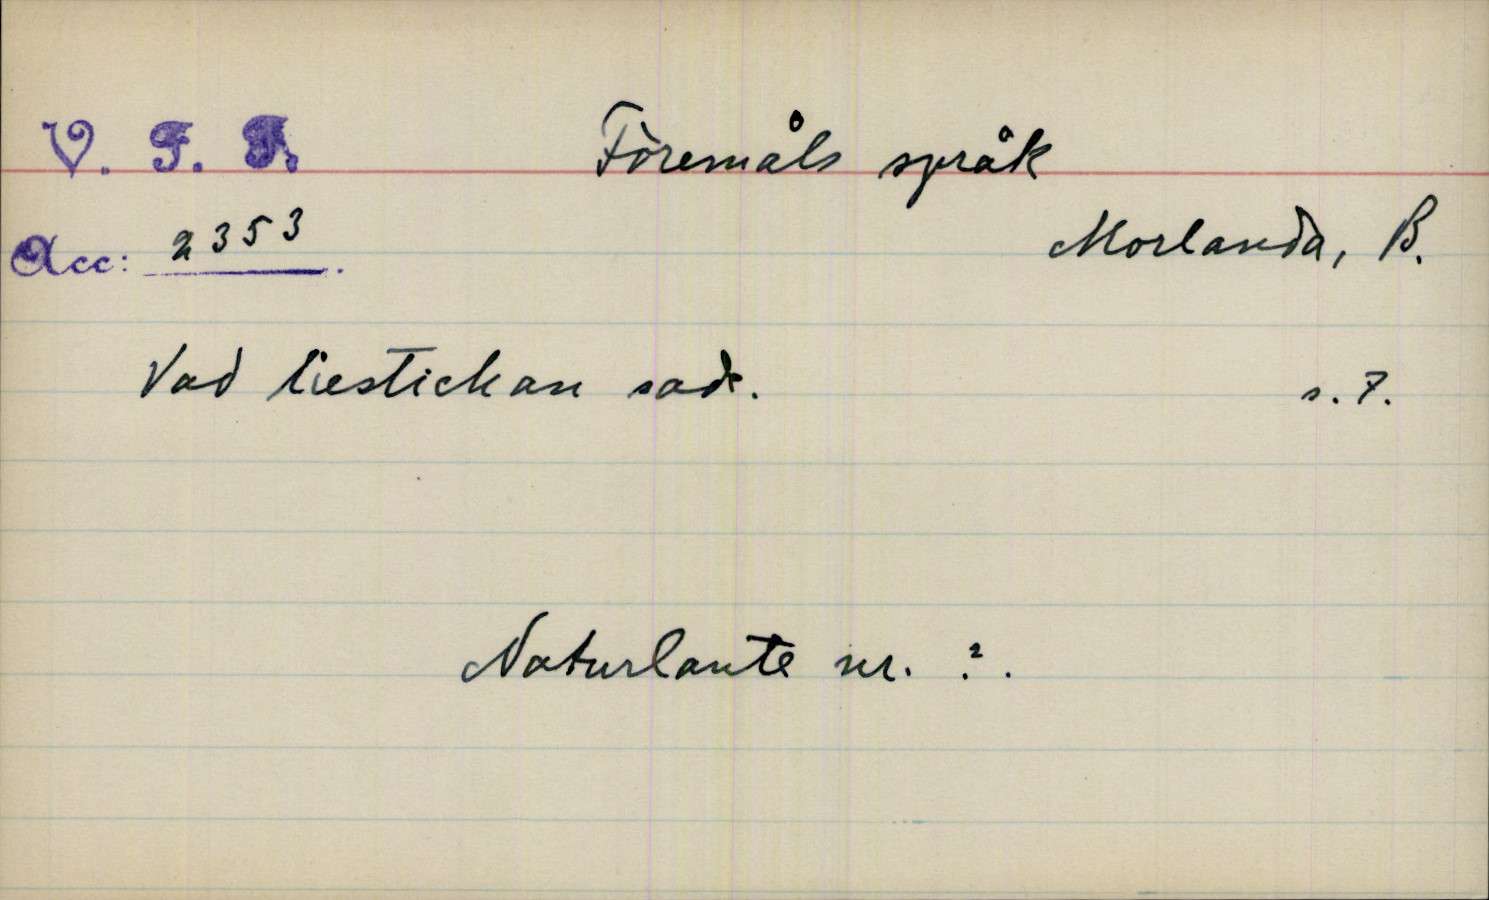 V. F. F. Föremåls språk
Acc: 2353. Morlanda, B.
Vad liestickan sade. s. 7.
Naturlante nr. ?.